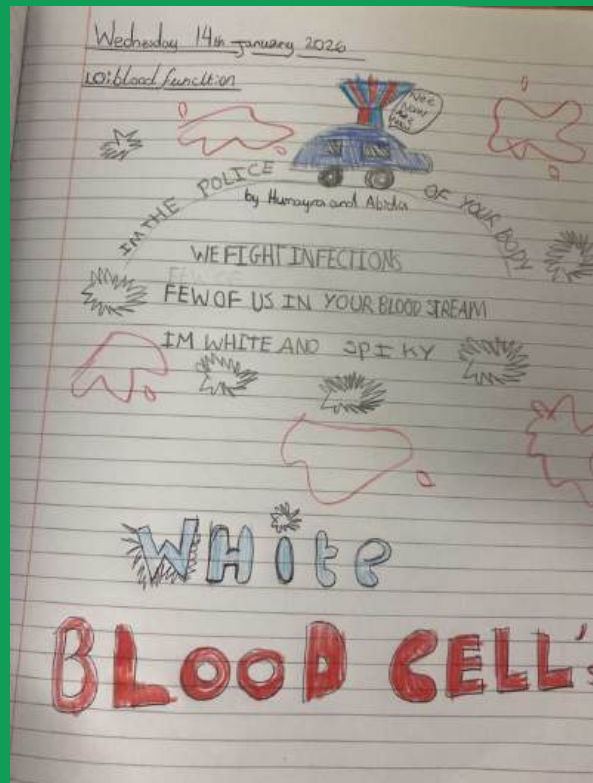 Wednesday 14th january 2026
LO: blood function
Nee
Naw
IM THE POLICE OF YOUR BODY
by Humayra and Abida
WE FIGHT INFECTIONS
FEW OF
FEW OF US IN YOUR BLOOD STREAM
IM WHITE AND SPIKY
WHite
BLOOD CELL's